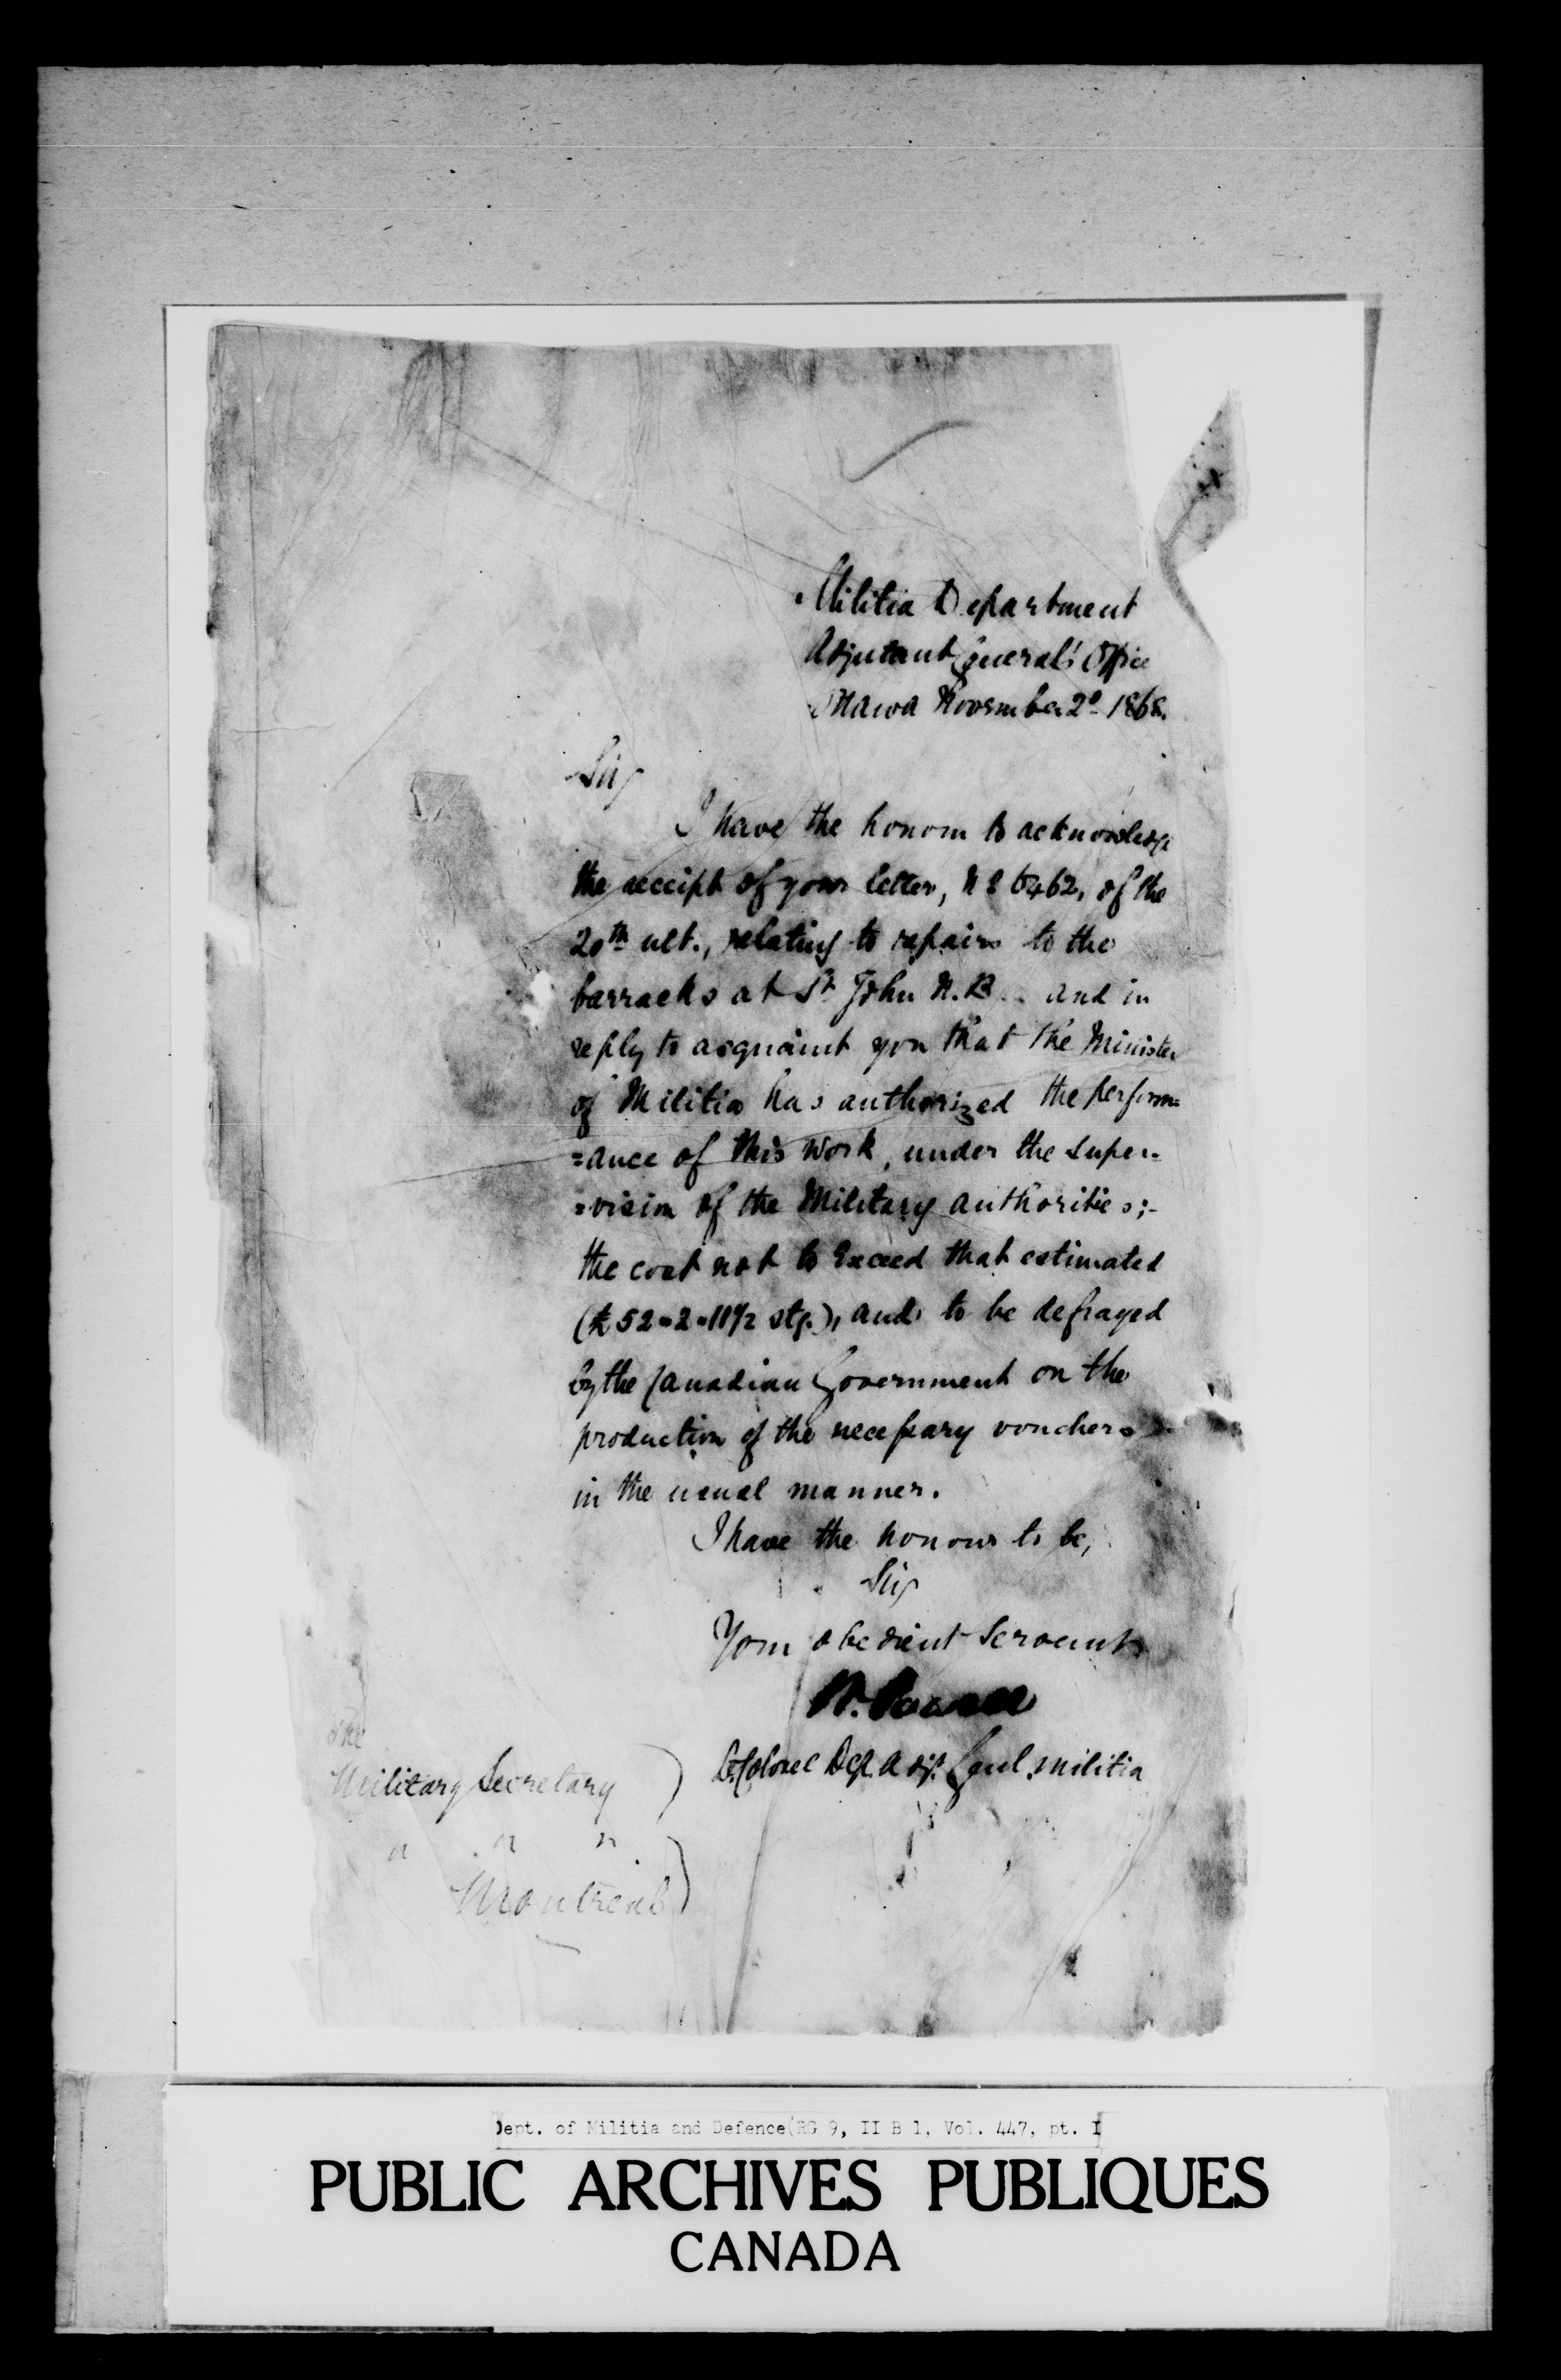 Militia Department
Adjutant General's Office
Ottawa November 2d 1868.
Sir,
I have the honour to acknowledge
the receipt of your letter, of the
20th ult., relating to repairs to the
barracks at St John N.B. and in
reply to acquaint you that the Minister
of Militia has authorized the perform=
=ance of this work, under the super-
=vision of the Military authorities;-
the cost not to exceed that estimated
(£52-2-11½ stg.), and to be defrayed
by the Canadian Government on the
production of the necessary vouchers
in the usual manner.
I have the honour to be,
Sir,
Your obedient Servant
W. Powell
Lt. Colonel Dep. Adjt. Genl. Militia
The
Military Secretary
" " "
Montreal
Dept. of Militia and Defence(RG 9, II B 1, Vol. 447, pt. I
PUBLIC ARCHIVES PUBLIQUES
CANADA